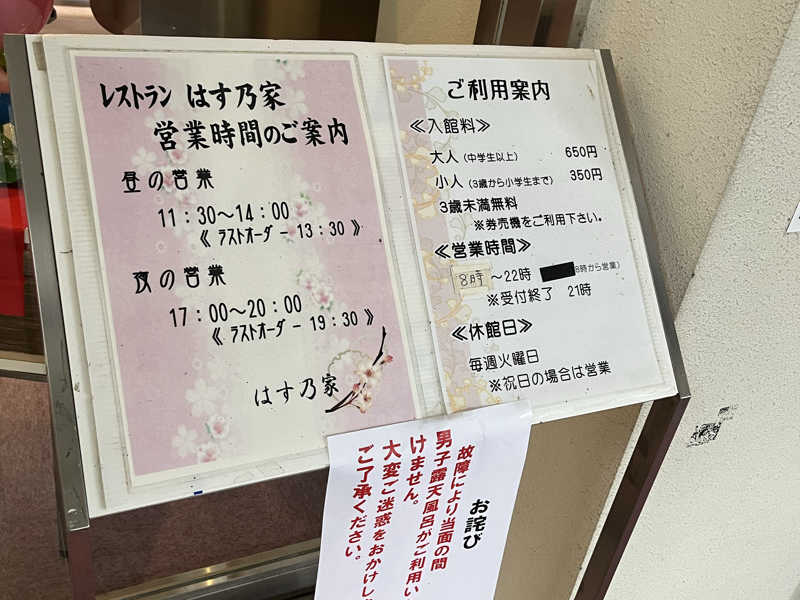 レストラン はす乃家
営業時間のご案内
昼の営業
11:30～14:00
《 ラストオーダー 13:30 》
夜の営業
17:00～20:00
《 ラストオーダー 19:30 》
はす乃家
ご利用案内
≪入館料≫
大人(中学生以上) 650円
小人(3歳から小学生まで) 350円
3歳未満無料
※券売機をご利用下さい。
≪営業時間≫
8時～22時 8時から営業)
※受付終了 21時
≪休館日≫
毎週火曜日
※祝日の場合は営業
お詫び
故障により当面の間
男子露天風呂がご利用い
けません。
大変ご迷惑をおかけし
ご了承ください。